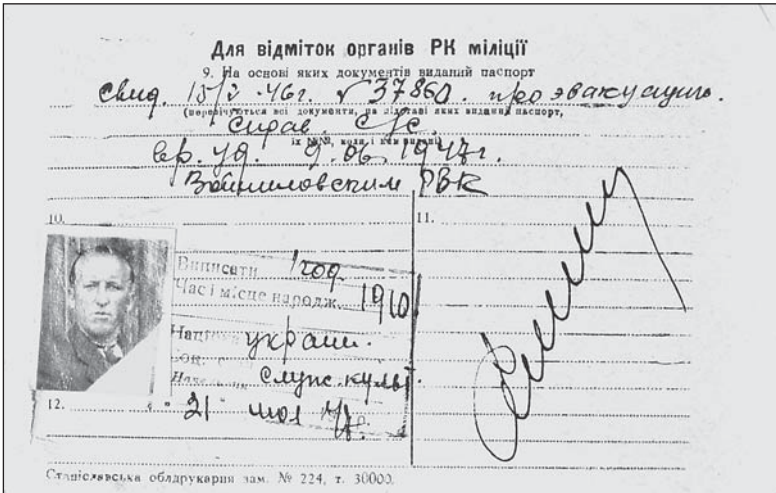 Для відміток органів РК міліції
9. На основі яких документів виданий паспорт
свид. 15/2 46г. № 37860. про эвакуацию.
(перечіуються всі документи, на підставі яких виданий паспорт,
їх №№, коли і ким видані)
вр. уд. 9.06.1947г.
Войниловским РВК
10.
11.
Виписати 1 год
Час і місце народж. 1910
Націона украин.
Соц.
служ.
12.
21 июл 47
Станіславська облдрукарня зам. № 224, т. 30000.